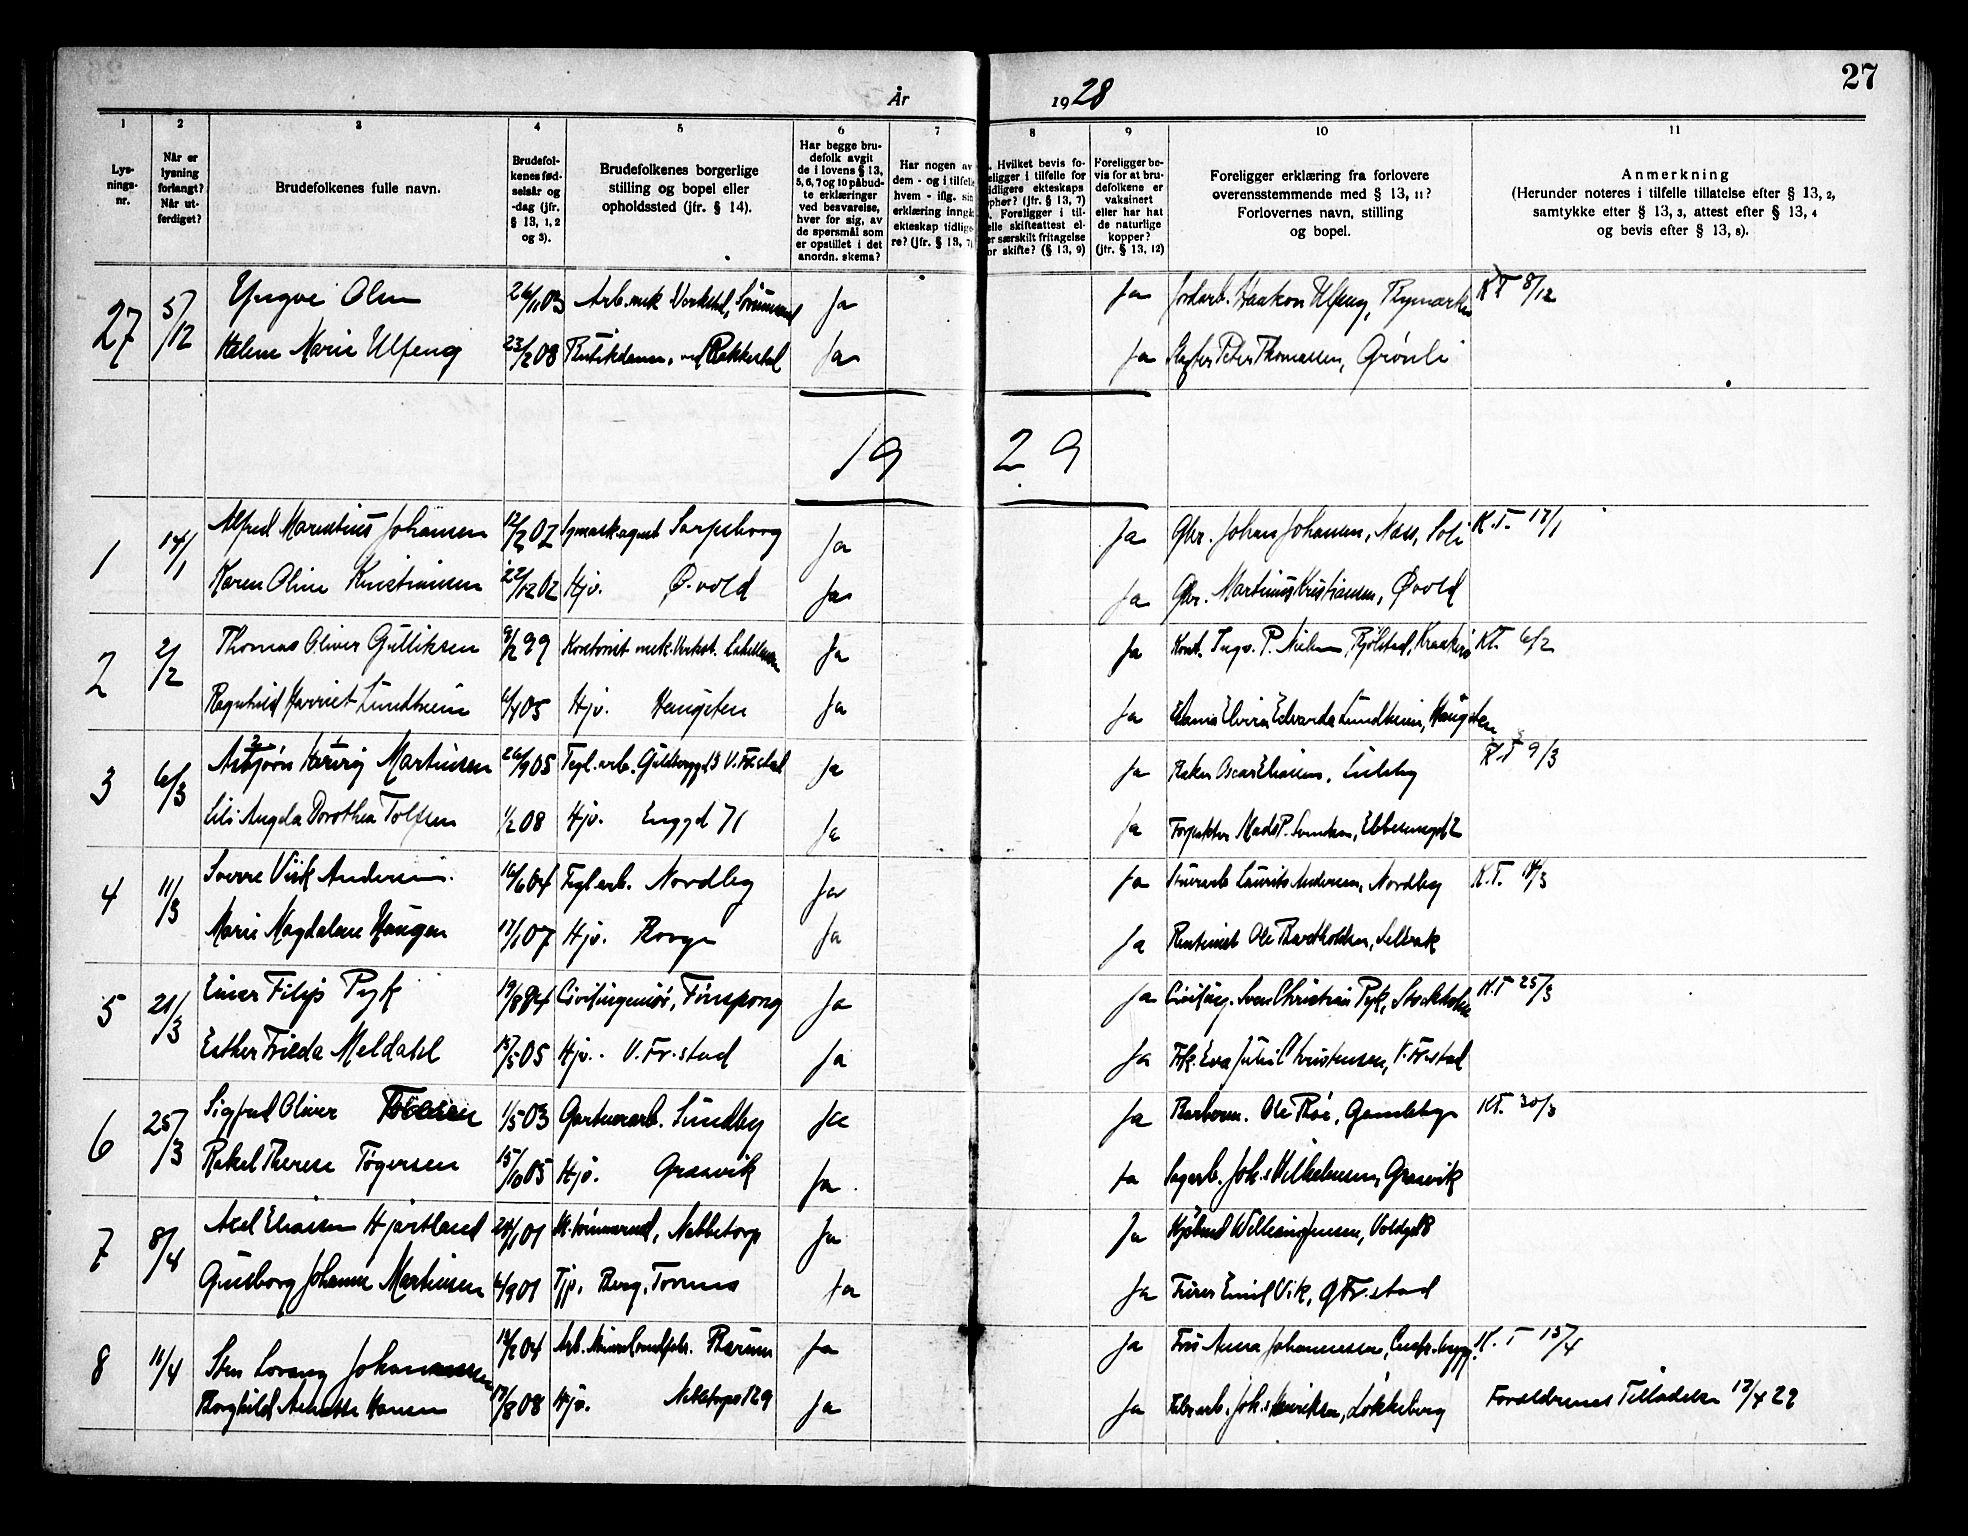 27
År 1928
1 2 3 4 5 6 7 8 9 10 11
Lysnings-nr.
Når er lysning forlangt? Når utferdiget?
Brudefolkenes fulle navn.
Brudefolkenes fødselsår og -dag (jfr. § 13, 1, 2 og 3).
Brudefolkenes borgerlige stilling og bopel eller opholdssted (jfr. § 14).
Har begge brudefolk avgit de i lovens § 13, 5, 6, 7 og 10 påbudte erklæringer ved besvarelse, hver for sig, av de spørsmål som er opstillet i det anordn. skema?
Har nogen av dem - og i tilfelle hvem - iflg. sin erklæring inngå ekteskap tidligere? (jfr. § 13, 7)
. Hvilket bevis foreligger i tilfelle for tidligere ekteskaps ophør? (jfr. § 13, 7) . Foreligger i tilfelle skifteattest eller særskilt fritagelse for skifte? (§ 13, 9)
Foreligger bevis for at brudefolkene er vaksinert eller har hat de naturlige kopper? (jfr. § 13, 12)
Foreligger erklæring fra forlovere overensstemmende med § 13, 11? Forlovernes navn, stilling og bopel.
Anmerkning (Herunder noteres i tilfelle tillatelse efter § 13, 2, samtykke efter § 13, 3, attest efter § 13, 4 og bevis efter § 13, 8).
27 5/12 Yngve Olsen 26/11 03 Arb. mek Verksted, Ja Ja Jordarb. Haakon Ulfeng, K.T 8/12
Helene Marie Ulfeng 23/2 08 Rakkestad Ja Ja Peter Thomassen, Grønli
1929
1 14/1 Alfred Marentius Johansen 12/2 02 Symask.agent Sarpsborg Ja Ja Gbr. Johan Johansen, Næss, Soli K.T. 17/1
Karen Oline Kristiansen 22/12 02 Hjv. Øvold Ja Ja Gbr. Martinius Kristiansen, Øvold
2 2/2 Thomas Oliver Gulliksen 9/2 99 Kontorist mek. Verkst. Ja Ja Kont. Ingv. P. Nielsen, KT. 6/2
Ragnhild Harriet Lundheim 6/4 05 Hjv. Haugsten Ja Ja Elvira Edvarda Lundheim, Haugsten
3 6/3 Asbjørn Henrig Martinsen 26/9 05 Tegl.arb. V. Fr.stad Ja Ja Baker Oscar Eliassen, Lisleby K.T 9/3
Lili Angela Dorothea Tolfsen 1/2 08 Hjv. Enggd 71 Ja Ja Mads P.
4 11/3 Sverre Viik Andersen. 16/6 04 Tegl.arb. Nordby Ja Ja Laurits Andersen, Nordby K.T.
Marie Magdalene Haugen 17/1 07 Hjv. Borge Ja Ja Ole Bartholdsen, Selbak
5 21/3 Einar Filip Pyk 19/8 84 Civilingeniør, Finspong Ja Ja Civiling. Sven Christian Pyk, Stockholm K.T 25/3
Esther Frieda Meldahl 15/5 05 Hjv. V. Fr.stad Ja Ja Frk. Eva Christensen, V. Fr.stad
6 25/3 Sigfred Oliver 1/5 03 Gartnerarb. Sundby Ja Ja Ole Roe, Gamlebyen KT. 30/3
Rakel Therese Tøgersen 15/10 05 Hjv. Græsvik Ja Ja Sagarb. Joh.s Vilhelmsen, Græsvik
7 8/4 Axel Eliassen Hjartland 24/1 01 Nabbetorp Ja Ja William Jensen, Voldgd 8
Gunborg Johanne Martinsen 6/9 01 Tjp. Berg, Torsnes Ja Ja Fürer Emil Vik, G Fr.stad
8 11/4 Sten Johannessen 04 Arb. Bærum Ja Ja Anna Johannessen, K.T 15/4
Borghild Annette Hansen 17/8 08 Hjv. Nabbetorp 129 Ja Ja Fabr.arb. Joh.s Henriksen, Løkkeberg Foreldrenes Tilladelse 13/4 29